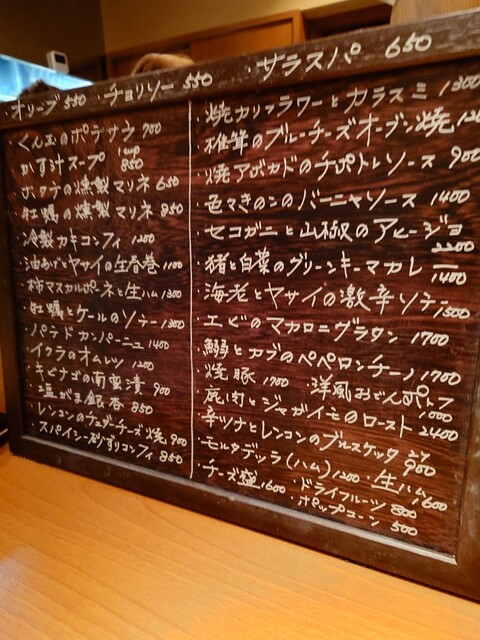 ・オリーブ 550 ・チョリソー 550 ・サラスパ 650
・くん玉のポテサラ 700
・かす汁スープ 1cup 850
・ホタテの燻製マリネ 650
・牡蠣の燻製マリネ 850
・冷製カキコンフィ 1200
・油あげとヤサイの生春巻 1100
・柿マスカルポーネと生ハム 1300
・牡蠣とケールのソテー 1300
・パテドカンパーニュ 1400
・イクラのオムレツ 1200
・キビナゴの南蛮漬 900
・塩がま銀杏 850
・レンコンのチェダーチーズ焼 900
・スパイシー砂ずりコンフィ 850
・焼カリフラワーとカラスミ 1300
・椎茸のブルーチーズオーブン焼
・焼アボカドのチポトレソース 900
・色々きのこのバーニャソース 1400
・セコガニと山椒のアヒージョ 2200
・猪と白菜のグリーンキーマカレー 1400
・海老とヤサイの激辛ソテー 1500
・エビのマカロニグラタン 1700
・鰯とカブのペペロンチーノ 1700
・焼豚 1700 ・洋風おでんポトフ 1000
・鹿肉とジャガイモのロースト 2400
・辛ツナとレンコンのブルスケッタ 2ケ 900
・モルタデッラ(ハム) 1200 ・生ハム 1600
・チーズ盛 1600 ・ドライフルーツ 800
・ポップコーン 500